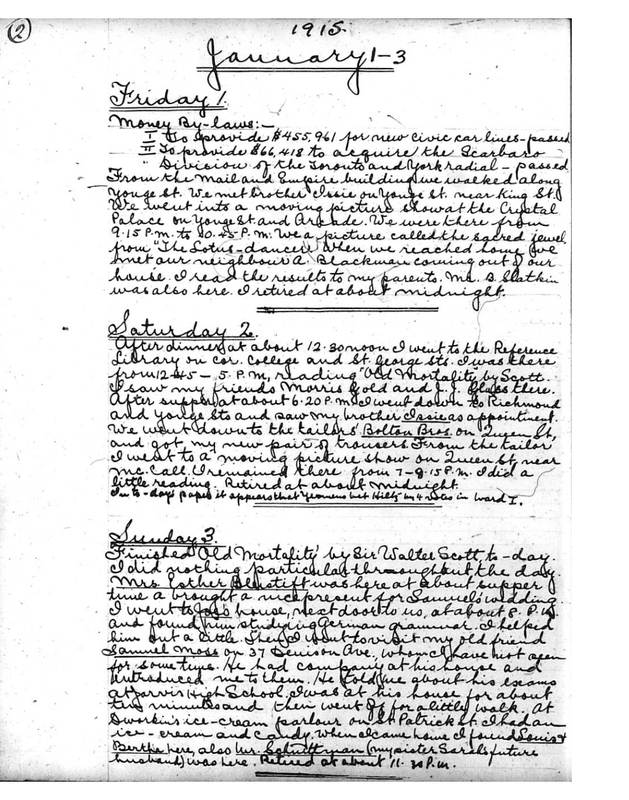 2
1915.
January 1-3
Friday 1.
Money By-laws:-
I To provide $455,961 for new civic car lines-passed
II To provide $66,418 to acquire the Scarboro
" Division of the Toronto and York radial - passed
From the Mail and Empire building we walked along
Yonge St. We met brother Issie on Yonge St. near King St.
We went into a moving picture show at the Crystal
Palace on Yonge St. and Arcade. We were there from
9.15 P.M. to 10.45 P.M. We a picture called the sacred jewel
from "The Lotus-dancer". When we reached home we
met our neighbour A. Blackman coming out of our
house. I read the results to my parents. Mr. B. Slatkin
was also here. I retired at about midnight.
Saturday 2.
After dinner, at about 12.30 noon I went to the Reference
Library on cor. College and St. George Sts. I was there
from 12.45 - 5. P.M, reading "Old Mortality" by Scott.
I saw my friends Morris Gold and J. J. there.
After supper at about 6.20 P.M. I went down to Richmond
and Yonge Sts and saw my brother Issie as appointment.
We went down to the tailors' Bolton Bros. on Queen St,
and got my new pair of trousers. From the tailor
I went to a moving picture show on Queen St, near
McCall. I remained there from 7-9.15 P.M. I did a
little reading. Retired at about midnight.
In to-day's paper it appears that Yeomens bet Hiltz by 4 votes in Ward I.
Sunday 3.
Finished "Old Mortality" by Sir Walter Scott, to-day.
I did nothing particular throughout the day.
Mrs Esther Bleistift was here at about supper
time a brought a nice present for Samuel's wedding.
I went to house, next door to us, at about 8. P.M
and found him studying German grammar. I helped
him out a little. Then I went to visit my old friend
Samuel Moss on 37 Denison Ave. whom I have not seen
for sometime. He had company at his house and
introduced me to them. He told me about his exams
at Jarvis High School. I was at his house for about
ten minutes and then went for a little walk. At
Dworkin's ice-cream parlour on St Patrick St. I had an
ice-cream and candy. When I came home I found Louis &
Bertha here, also Mr. (my sister Sarah's future
husband) was here. Retired at about 11.30 P.M.